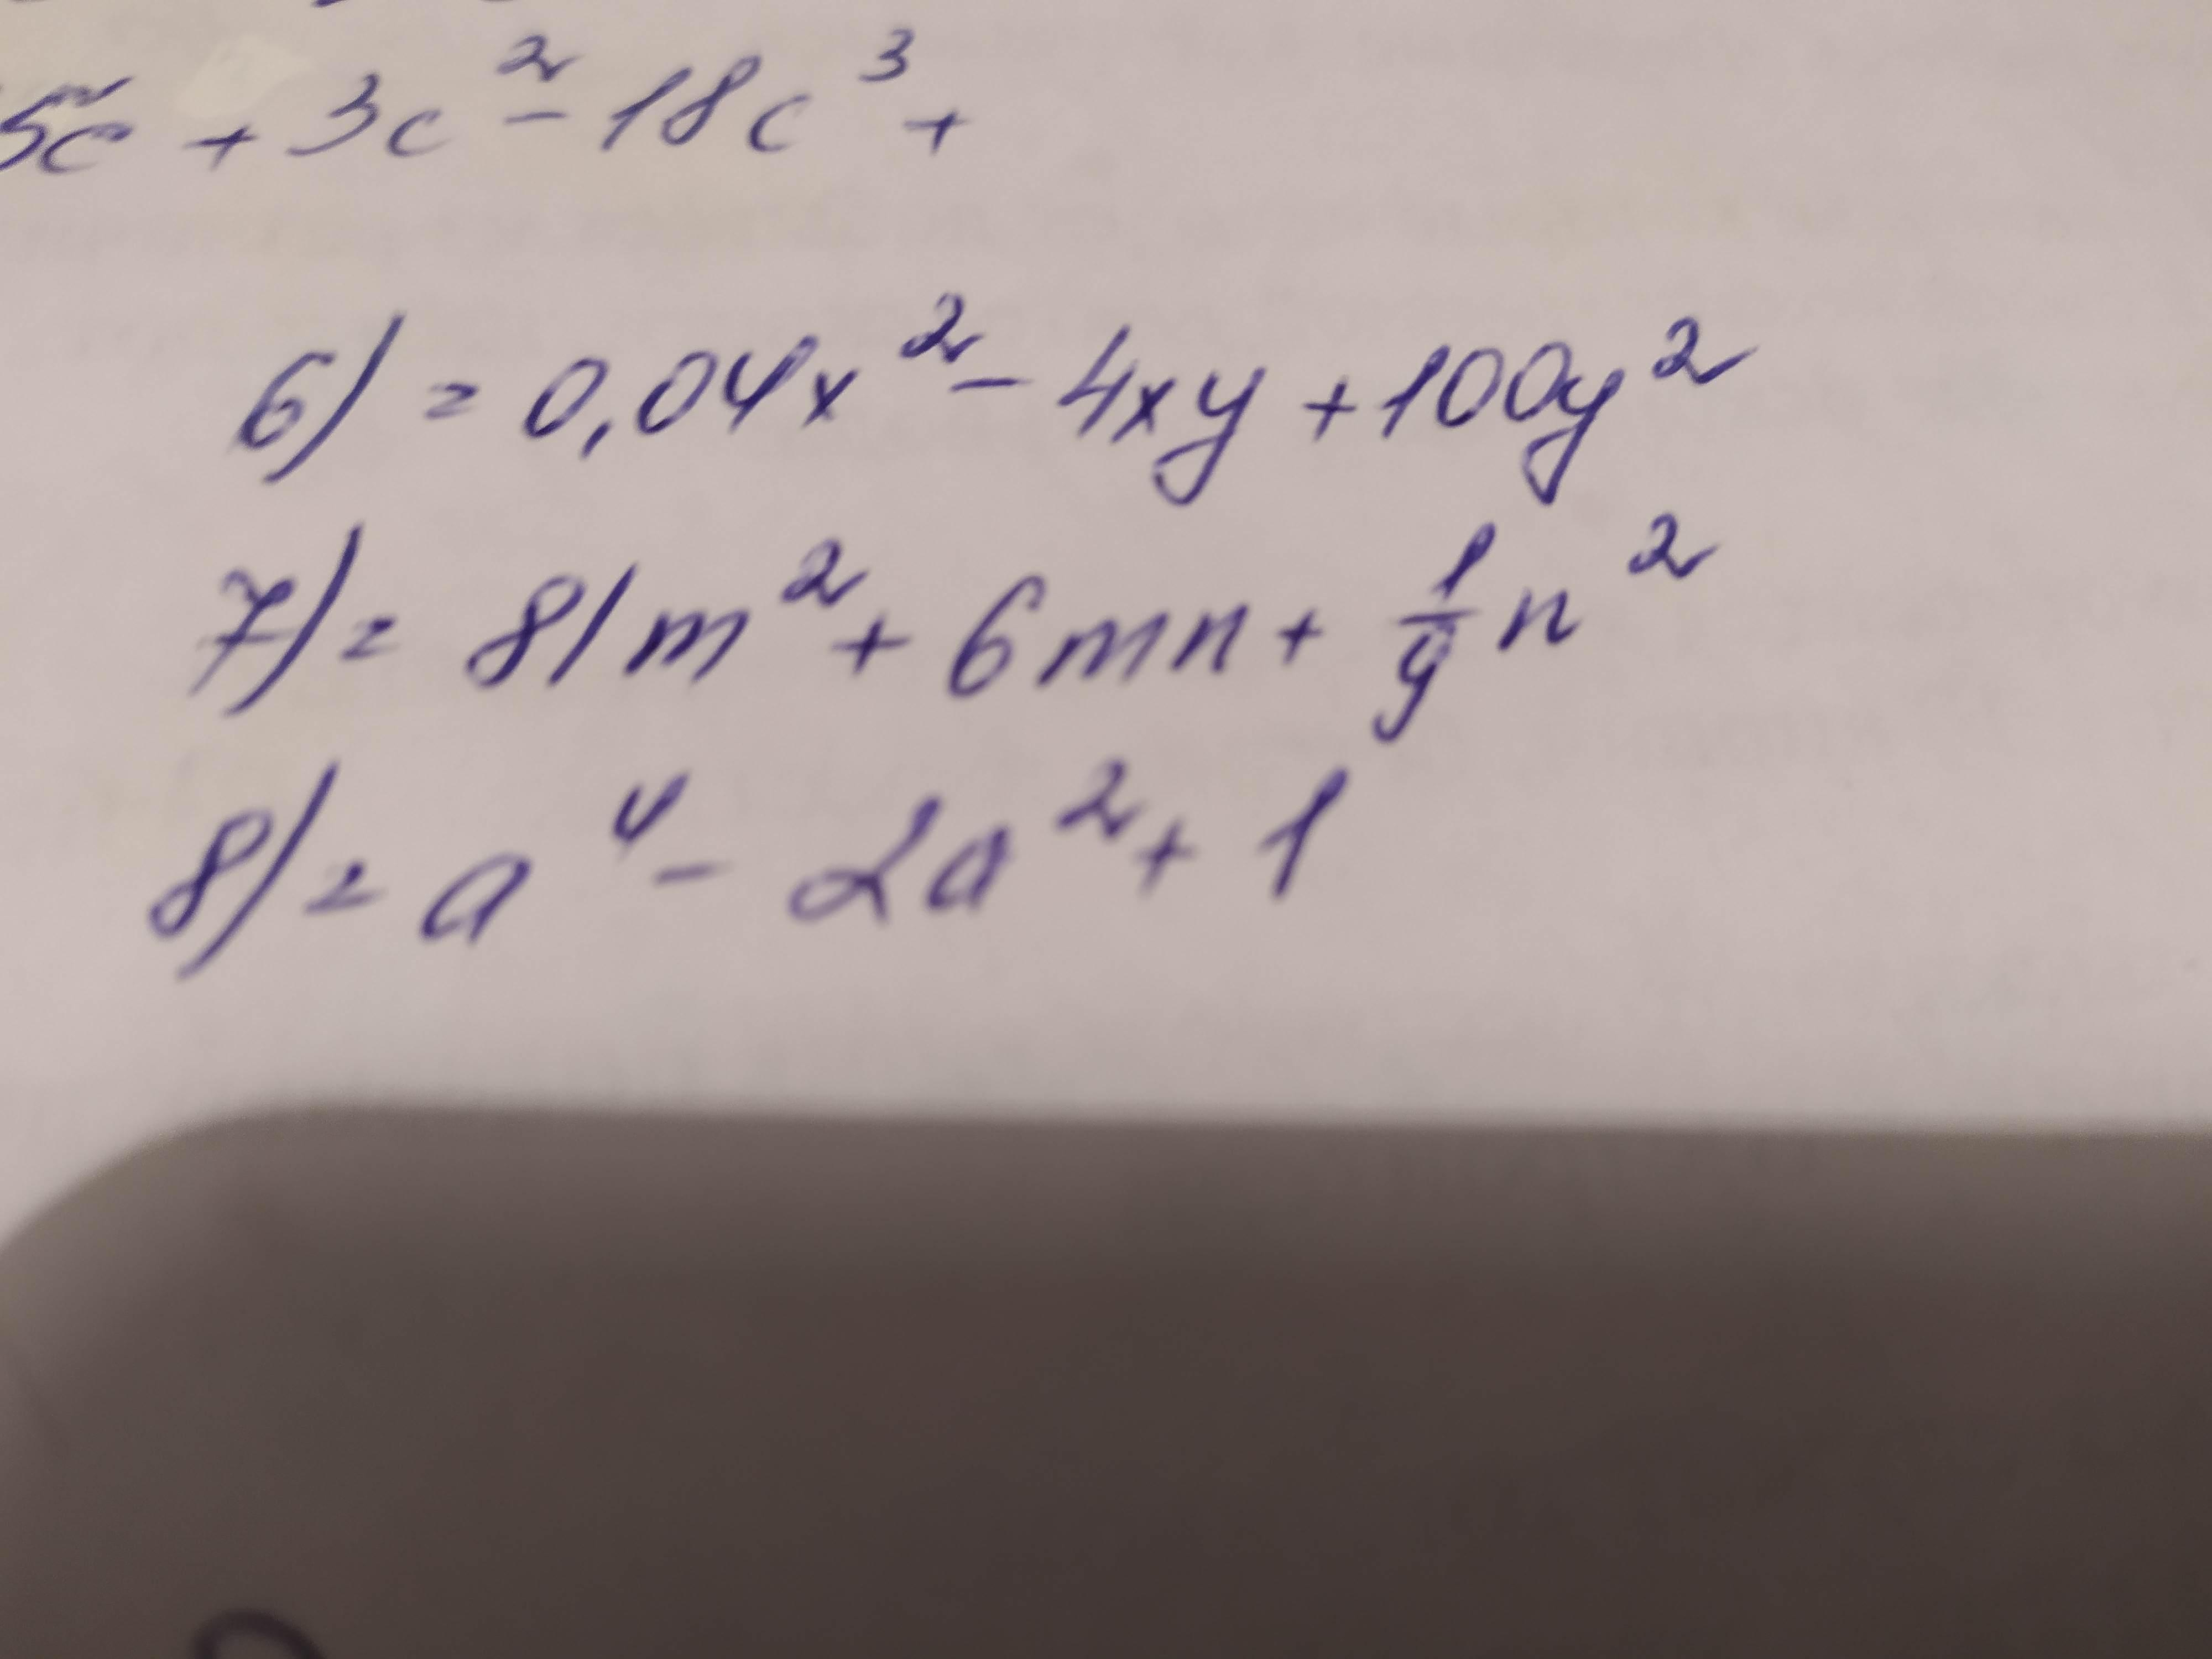 5c² + 3c² - 18c³ +
6) = 0,04x² - 4xy + 100y²
7) = 81m² + 6mn + 1/9 n²
8) = a⁴ - 2a² + 1